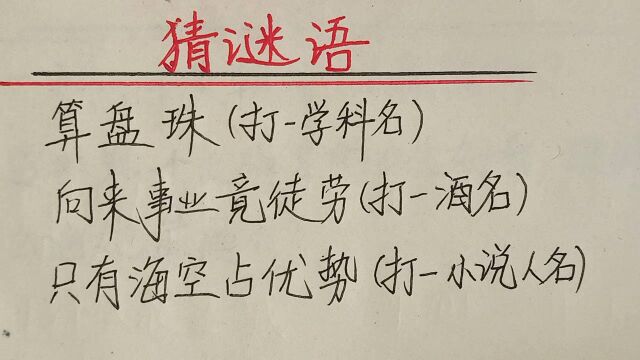 猜谜语
算盘珠(打一学科名)
向来事业竟徒劳(打一酒名)
只有海空占优势(打一小说人名)